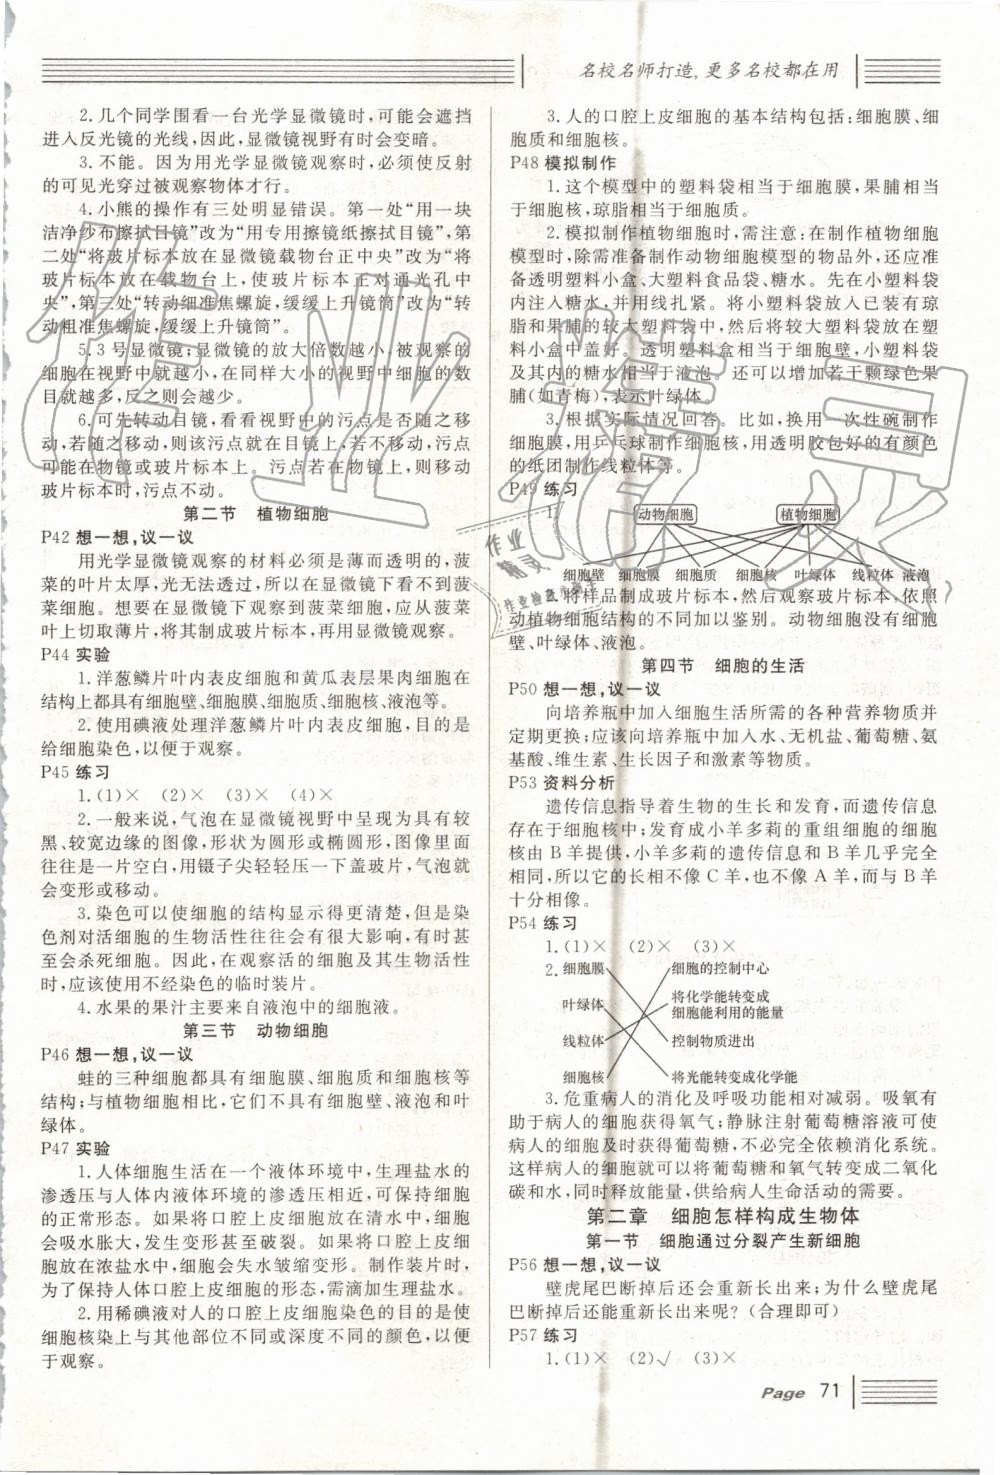 名校名师打造,更多名校都在用
2.几个同学围看一台光学显微镜时,可能会遮挡
进入反光镜的光线,因此,显微镜视野有时会变暗。
3.不能。因为用光学显微镜观察时,必须使反射
的可见光穿过被观察物体才行。
4.小熊的操作有三处明显错误。第一处“用一块
洁净纱布擦拭目镜”改为“用专用擦镜纸擦拭目镜”,第
二处“将玻片标本放在显微镜载物台正中央”改为“将
玻片标本放在载物台上,使玻片标本正对通光孔中
央”,第三处“转动细准焦螺旋,缓缓上升镜筒”改为“转
动粗准焦螺旋,缓缓上升镜筒”。
5.3号显微镜;显微镜的放大倍数越小,被观察的
细胞在视野中就越小,在同样大小的视野中细胞的数
目就越多,反之则会越少。
6.可先转动目镜,看看视野中的污点是否随之移
动,若随之移动,则该污点就在目镜上;若不移动,污点
可能在物镜或玻片标本上。污点若在物镜上,则移动
玻片标本时,污点不动。
第二节 植物细胞
P42 想一想,议一议
用光学显微镜观察的材料必须是薄而透明的,菠
菜的叶片太厚,光无法透过,所以在显微镜下看不到菠
菜细胞。想要在显微镜下观察到菠菜细胞,应从菠菜
叶上切取薄片,将其制成玻片标本,再用显微镜观察。
P44 实验
1.洋葱鳞片叶内表皮细胞和黄瓜表层果肉细胞在
结构上都具有细胞壁、细胞膜、细胞质、细胞核、液泡等。
2.使用碘液处理洋葱鳞片叶内表皮细胞,目的是
给细胞染色,以便于观察。
P45 练习
1.(1)× (2)× (3)× (4)×
2.一般来说,气泡在显微镜视野中呈现为具有较
黑、较宽边缘的图像,形状为圆形或椭圆形,图像里面
往往是一片空白,用镊子尖轻轻压一下盖玻片,气泡就
会变形或移动。
3.染色可以使细胞的结构显示得更清楚,但是染
色剂对活细胞的生物活性往往会有很大影响,有时甚
会杀死细胞。因此,在观察活的细胞及其生物活性
时,应该使用不经染色的临时装片。
4.水果的果汁主要来自液泡中的细胞液。
第三节 动物细胞
P46 想一想,议一议
蛙的三种细胞都具有细胞膜、细胞质和细胞核等
结构;与植物细胞相比,它们不具有细胞壁、液泡和叶
绿体。
P47 实验
1.人体细胞生活在一个液体环境中,生理盐水的
渗透压与人体内液体环境的渗透压相近,可保持细胞
的正常形态。如果将口腔上皮细胞放在清水中,细胞
会吸水胀大,发生变形甚至破裂。如果将口腔上皮细
胞放在浓盐水中,细胞会失水皱缩变形。制作装片时,
为了保持人体口腔上皮细胞的形态,需滴加生理盐水。
2.用稀碘液对人的口腔上皮细胞染色的目的是使
细胞核染上与其他部位不同或深度不同的颜色,以便
于观察。
3.人的口腔上皮细胞的基本结构包括:细胞膜、细
胞质和细胞核。
P48 模拟制作
1.这个模型中的塑料袋相当于细胞膜,果脯相当
于细胞核,琼脂相当于细胞质。
2.模拟制作植物细胞时,需注意:在制作植物细胞
模型时,除需准备制作动物细胞模型的物品外,还应准
备透明塑料小盒、大塑料食品袋、糖水。先在小塑料袋
内注入糖水,并用线扎紧。将小塑料袋放入已装有琼
脂和果脯的较大塑料袋中,然后将较大塑料袋放在塑料
小盒中盖好。透明塑料盒相当于细胞壁,小塑料袋
及其内的糖水相当于液泡。还可以增加若干颗绿色果
脯(如青梅),表示叶绿体。
3.根据实际情况回答。比如,换用一次性碗制作
细胞膜,用乒乓球制作细胞核,用透明胶包好的有颜色
的纸团制作线粒体等。
P49 练习
1.
动物细胞 植物细胞
细胞壁 细胞膜 细胞质 细胞核 叶绿体 线粒体 液泡
将样品制成玻片标本,然后观察玻片标本,依照
动植物细胞结构的不同加以鉴别。动物细胞没有细胞
壁、叶绿体、液泡。
第四节 细胞的生活
P50 想一想,议一议
向培养瓶中加入细胞生活所需的各种营养物质并
定期更换;应该向培养瓶中加入水、无机盐、葡萄糖、氨
基酸、维生素、生长因子和激素等物质。
P53 资料分析
遗传信息指导着生物的生长和发育,而遗传信息
存在于细胞核中;发育成小羊多莉的重组细胞的细胞
核由B羊提供,小羊多莉的遗传信息和B羊几乎完全
相同,所以它的长相不像C羊,也不像A羊,而与B羊
十分相像。
P54 练习
1.(1)× (2)× (3)×
2.细胞膜 细胞的控制中心
叶绿体 将化学能转变成
细胞能利用的能量
线粒体 控制物质进出
细胞核 将光能转变成化学能
3.危重病人的消化及呼吸功能相对减弱。吸氧有
助于病人的细胞获得氧气;静脉注射葡萄糖溶液可使
病人的细胞及时获得葡萄糖,不必完全依赖消化系统。
这样病人的细胞就可以将葡萄糖和氧气转变成二氧化
碳和水,同时释放能量,供给病人生命活动的需要。
第二章 细胞怎样构成生物体
第一节 细胞通过分裂产生新细胞
P56 想一想,议一议
壁虎尾巴断掉后还会重新长出来;为什么壁虎尾
巴断掉后还能重新长出来呢?(合理即可)
P57 练习
1.(1)× (2)√ (3)×
Page 71